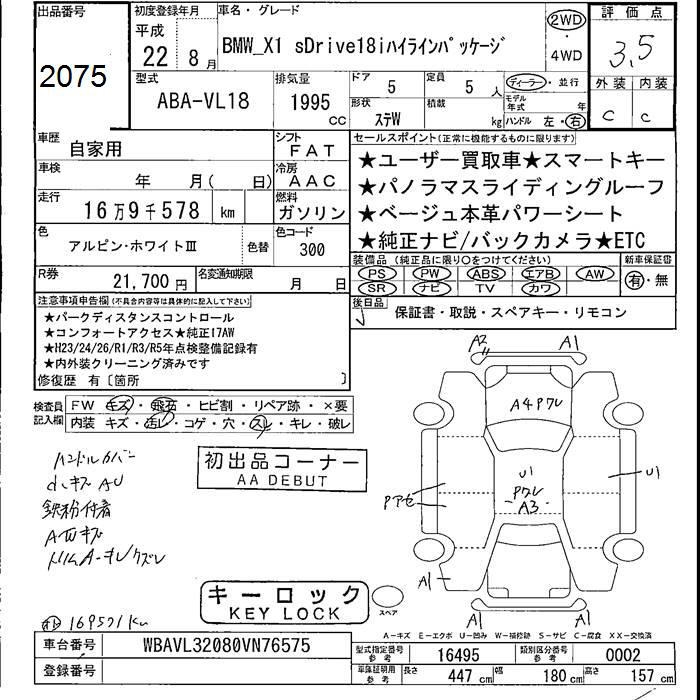 出品番号
2075
初度登録年月
平成
22 年 8 月
車名・グレード
BMW_X1 sDrive18iハイラインパッケージ
2WD
・
4WD
評価点
3,5
外装 内装
C C
型式
ABA-VL18
排気量
1995 CC
ドア
5
定員
5 人
形状
ステW
積載
kg
ディーラー・並行
モデル年式 年
ハンドル 左・右
車歴
自家用
シフト
FAT
車検
年 月( 日)
冷房
AAC
走行
16万9千578 km
燃料
ガソリン
色
アルピン・ホワイトⅢ
色替
色コード
300
R券
21,700 円
名変通知期限
月 日
セールスポイント(正常に機能するものに限ります)
★ユーザー買取車★スマートキー
★パノラマスライディングルーフ
★ベージュ本革パワーシート
★純正ナビ/バックカメラ★ETC
装備品 (純正品に限り○をつけてください)
PS PW ABS エアB AW
SR ナビ TV カワ
新車保証書
有・無
後日品
保証書・取説・スペアキー・リモコン
注意事項申告欄(不具合内容等は具体的に記入して下さい)
★パークディスタンスコントロール
★コンフォートアクセス★純正17AW
★H23/24/26/R1/R3/R5年点検整備記録有
★内外装クリーニング済みです
修復歴 有〔箇所 〕
検査員記入欄
FW キズ・飛石・ヒビ割・リペア跡・×要
内装 キズ・汚レ・コゲ・穴・スレ・キレ・破レ
ハンドルカバー
鉄粉付着
初出品コーナー
AA DEBUT
キーロック
KEY LOCK
スペア
A2
A1
A4Pワレ
U1
Pワレ
A3
U1
A1
A1
A1
169571Km
A－キズ E－エクボ U－凹み W－補修跡 S－サビ C－腐食 XX－交換済
車台番号
WBAVL32080VN76575
登録番号
型式指定番号 参考
16495
類別区分番号 参考
0002
車庫証明用 参考
長さ 447 cm
幅 180 cm
高さ 157 cm